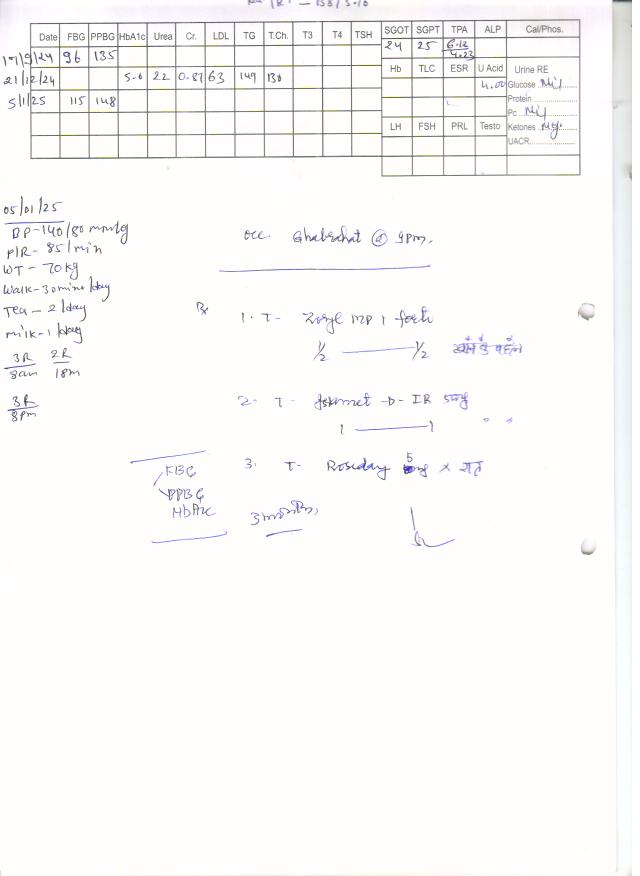 Date FBG PPBG HbA1c Urea Cr. LDL TG T.Ch. T3 T4 TSH SGOT SGPT TPA ALP Cal/Phos.
17/9/24 96 135 24 25 6.12 4.23
Hb TLC ESR U Acid Urine RE
21/12/24 5.0 22 0.87 63 149 130 4.00 Glucose Nil
5/1/25 115 148 Protein
Pc Nil
LH FSH PRL Testo Ketones Neg.
UACR
05/01/25
BP-140/80 mmHg
P/R- 85/min
WT - 70 kg
Walk-30 mins/day
Tea - 2/day
milk-1/day
3R 2R
8am 18pm
3R
8pm
occ. Ghabrahat @ 9pm.
Rx
1. T- Zoryl MP 1 forte
1/2 1/2
2. T- D- IR
1 1 " "
3. T- Roseday 5 x रात
FBG
PPBG
HbA1c
3 months,